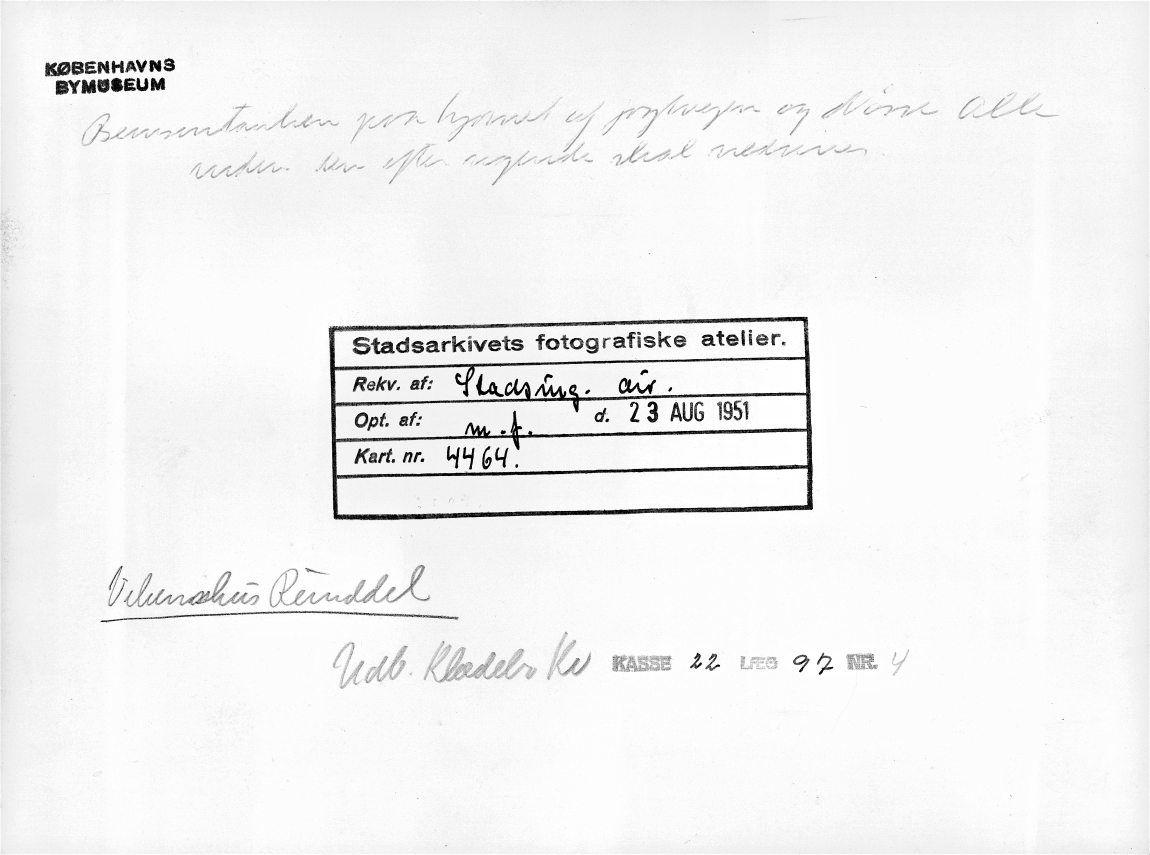 KØBENHAVNS
BYMUSEUM
Bensintanken paa hjørnet af Jagtvegen og Nørre Alle
inden den efter sigende skal nedrives.
Stadsarkivets fotografiske atelier.
Rekv. af: Stadsing. dir.
Opt. af: m.f. d. 23 AUG 1951
Kart. nr. 4464.
Vibenshus Runddel
Udb. Kladebo Kv KASSE 22 LÆG 97 NR. 4